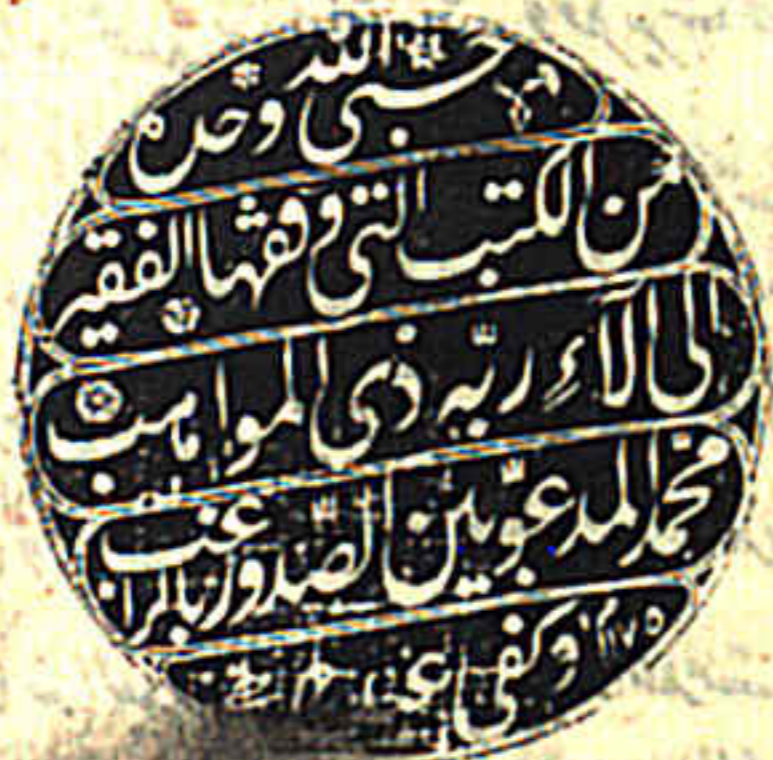 حسبي الله وحده
من الكتب التي وقفها الفقير
الى آلاء ربّه ذي المواهب
محمد المدعوّ بين الصّدور بالراغب
١١٧٥ وكفى